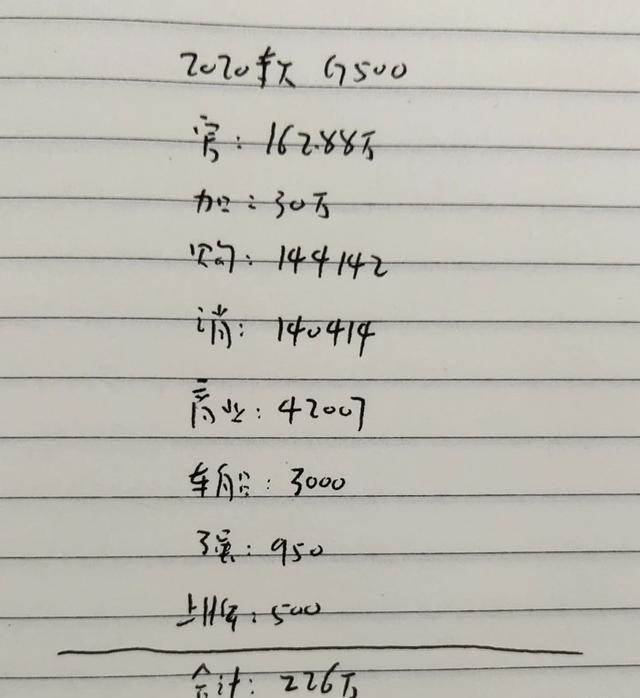 2020款 G500
官: 162.88万
加: 30万
购: 144142
消: 140414
商业: 42007
车船: 3000
强: 950
上牌: 500
合计: 226万